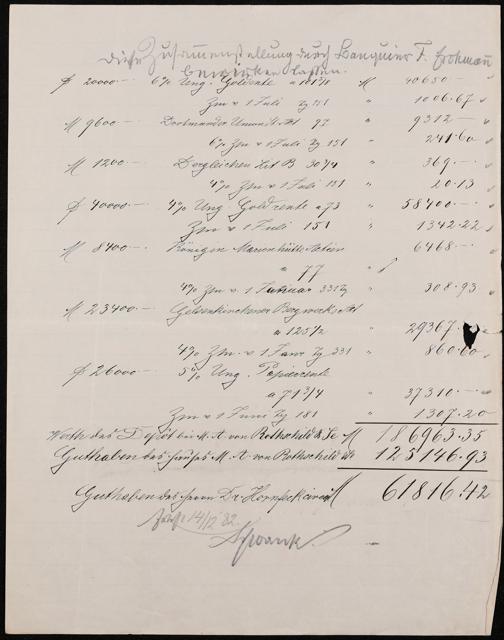 diese Zusammenstellung durch Banquier F.
lassen.
20000.— 6% Ung. Goldrente a 101¾ M 40650.—
Zins v 1 Juli Tg 151 " 1006.67
M 9600 — 97 " 9312 —
6% Zins v 1 Juli Tg 151 " 241.60
M 1200 — Dergleichen Lit B 30¾ " 369.—
4% Zins v 1 Juli 151 " 20.13
40000.— 4% Ung. Goldrente a 73 " 58400.—
Zins v 1 Juli 151 " 1342.22
M 8400 — Königin Marienhütte Actien " 6468 —
a 77
4% Zins v 1 Januar 331 Tg " 308.93
M 23400.— Gelsenkirchener Bergwerks Act
a 125½ " 29367.
4% Zins v 1 Janr Tg 331 " 860.60
26000 — 5% Ung. Papierrente
a 71¾ " 37310.—
Zins v 1 Juni Tg 181 " 1307.20
Werth des Depôt bei M. A. von Rothschild & Se M 186963.35
Guthaben des Hauses M. A. von Rothschild 125146.93
Guthaben des Herrn Dr. M 61816.42
14/12 82.